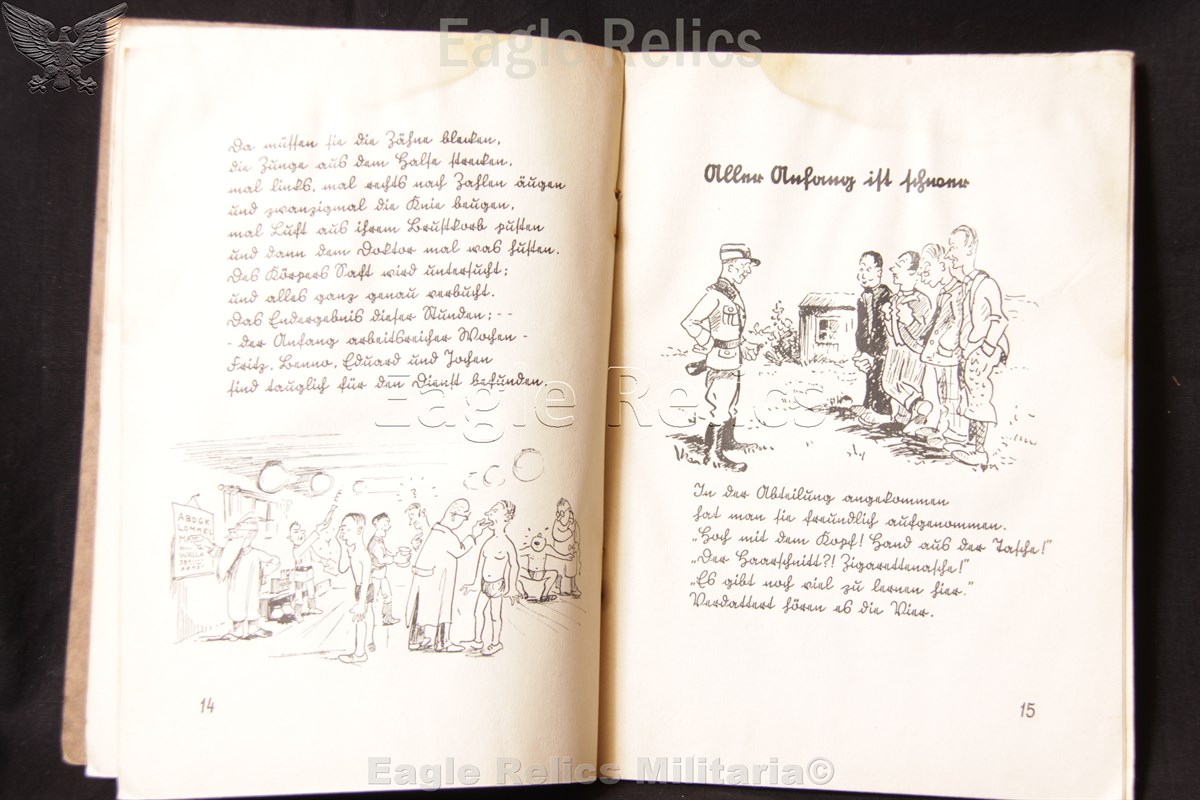 Eagle Relics
Da mussten sie die Zähne blecken,
die Zunge aus dem Halse strecken,
mal links, mal rechts nach Zahlen äugen
und zwanzigmal die Knie beugen,
mal Luft aus ihrem Brustkorb pusten
und dann dem Doktor mal was husten.
Des Körpers Saft wird untersucht;
und alles ganz genau verbucht.
Das Endergebnis dieser Stunden; --
- der Anfang arbeitsreicher Wochen -
Fritz, Benno, Eduard und Jochen
sind tauglich für den Dienst befunden.
ABDGK
LOMMEL
14
Aller Anfang ist schwer
In der Abteilung angekommen
hat man sie freundlich aufgenommen.
„Hoch mit dem Kopf! Hand aus der Tasche!"
„Der Haarschnitt?! Zigarettenasche!"
„Es gibt noch viel zu lernen hier."
Verdattert hören es die Vier.
15
Eagle Relics
Eagle Relics Militaria©